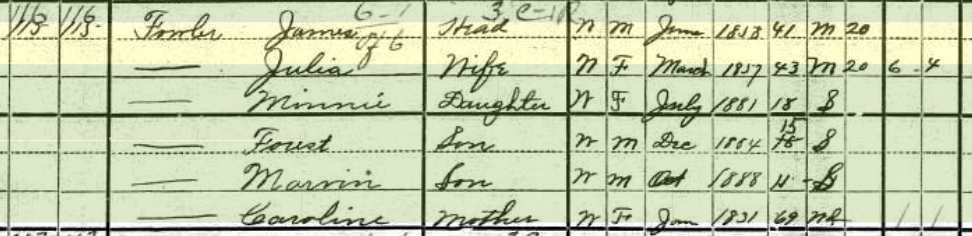 116 116 6-1 3 C-1R
113 113 Fowler James Head W M June 1858 41 M 20
— Julia Wife W F March 1857 43 M 20 6 4
— Minnie Daughter W F July 1881 18 S
— Forest Son W M Dec 1884 15 S
— Marvin Son W M Oct 1888 11 S
— Caroline Mother W F Jan 1831 69 1 1